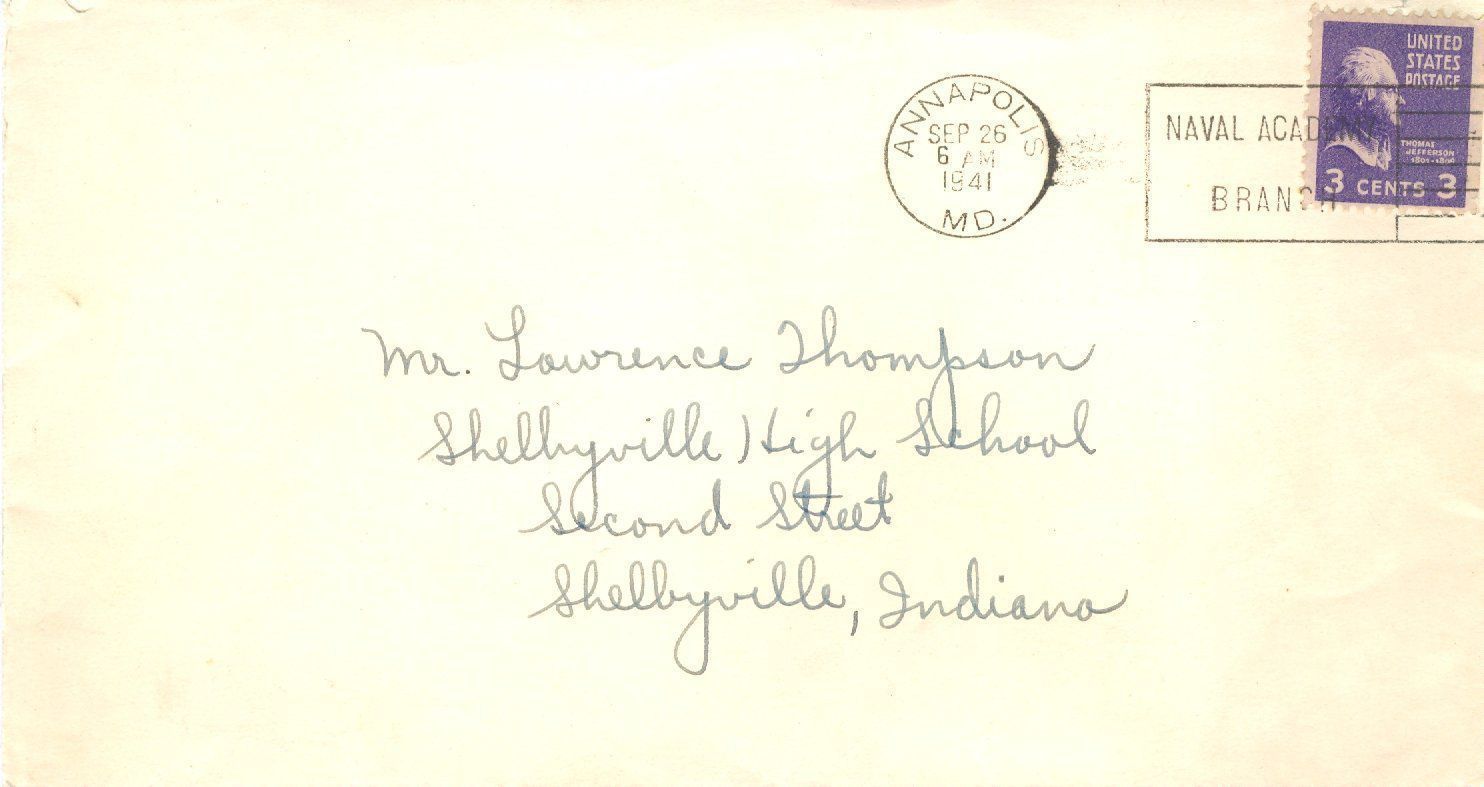 UNITED
STATES
POSTAGE
THOMAS
JEFFERSON
1801-1809
3 CENTS 3
ANNAPOLIS
SEP 26
6 AM
1941
MD.
NAVAL ACADEMY
BRANCH
Mr. Lawrence Thompson
Shelbyville High School
Second Street
Shelbyville, Indiana